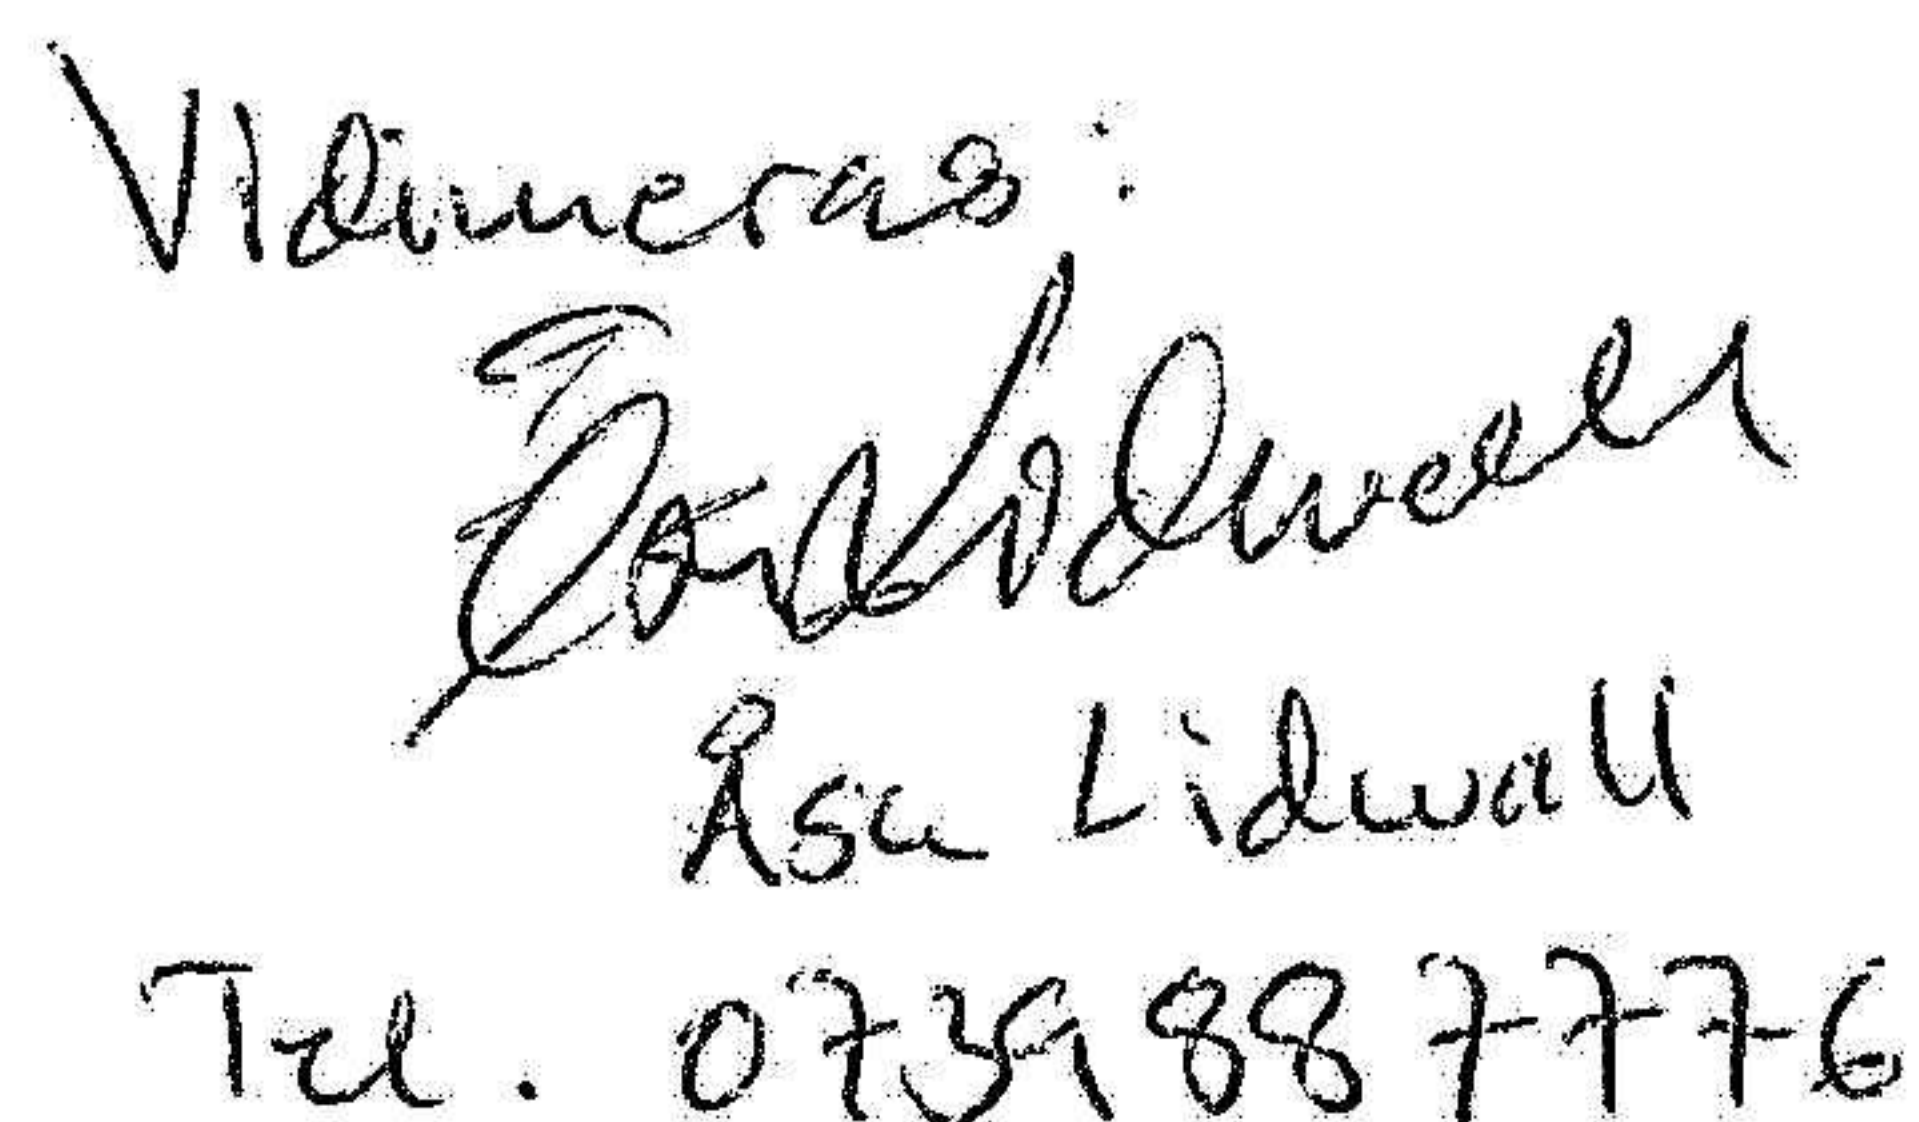 Vidimeras:
Lidwall
Åsa Lidwall
Tel. 0739887776